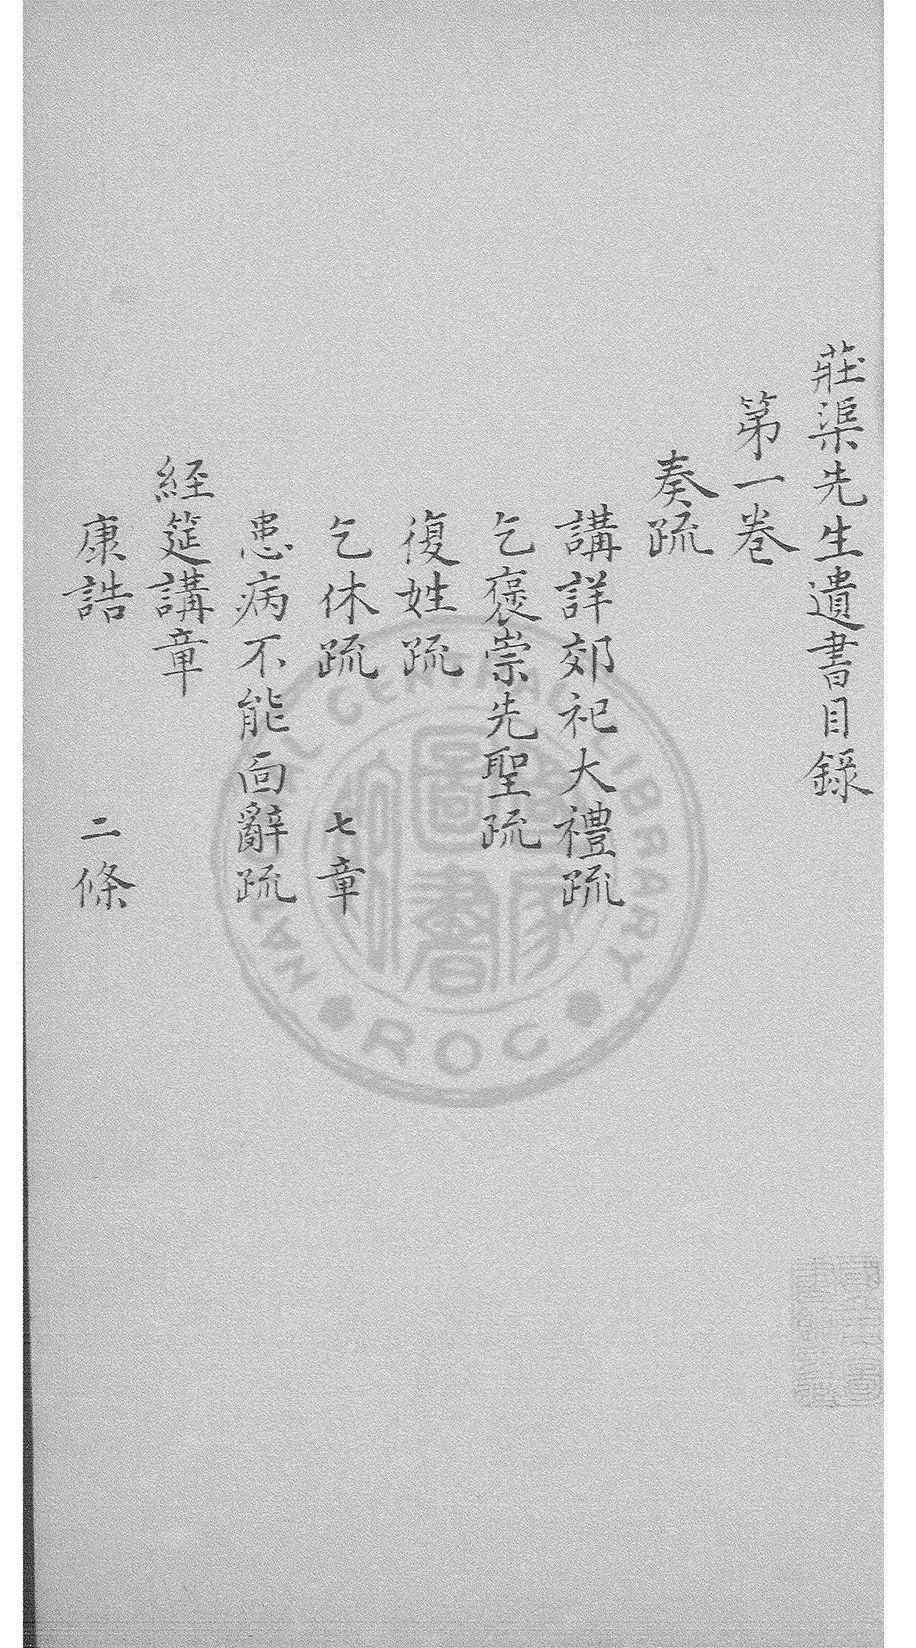 莊渠先生遺書目錄
第一卷
奏疏
講詳郊祀大禮疏
乞褒崇先聖疏
復姓疏
乞休疏 七章
患病不能面辭疏
經筵講章
康誥 二條
NATIONAL CENTRAL LIBRARY
國家圖書館
ROC